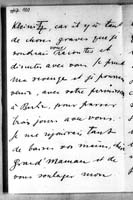 Kleinitz, car il y a tant
de choses graves que je
voudrais vous raconter et
discuter avec vous. Je prend
ma revenge et je pourrai
venir, avec votre permission
à Berlin, pour passer
trois jours avec vous.
Je me rejouirais tant
de baiser vos mains, chère
Grand'Maman, et de
vous soulager mon